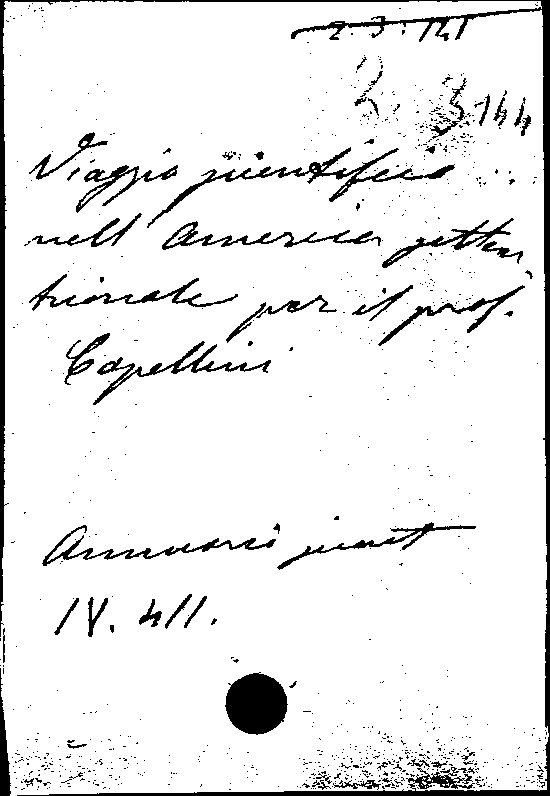 2. 3. 141
2. 3144
Viaggio scientifico
nell' America setten
trionale per il prof.
Capellini
Annuario scient
IV. 411.